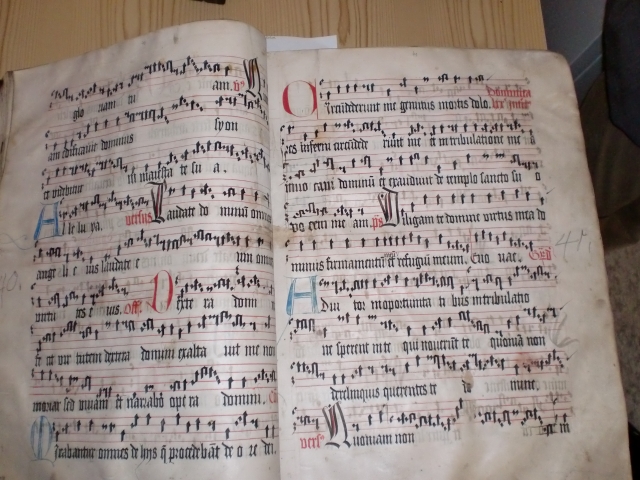 am. V
glo riam tu
am edificavit dominus syon
et videbitur in maiestate su a.
Al le lu ya. versus Laudate do minum omnes
ange li e ius laudate e um omn
virtu tes e ius. Off. Dexte ra domi ni
fe cit vir tutem dextera domini exalta vit me non
moriar sed vivam et narrabo opera domini.
Mirabantur omnes de hijs q procedebāt de o re dei
Circūdederunt me gemitus mortis dolo Dominica lxx
res inferni circūde derunt me et in tribulatione me a
invo cavi dominū et exaudivit de templo sancto su o
vo cem me am. ps Diligam te domine virtus mea do
minus firmamentū et refugiū meum. Evo vae.
Adiu tor in oportunita ti bus in tribulatio
ne sperent in te qui noverūt te quoniā non
derelinquis querentes te do mine.
vers Quoniam non
40.
41.